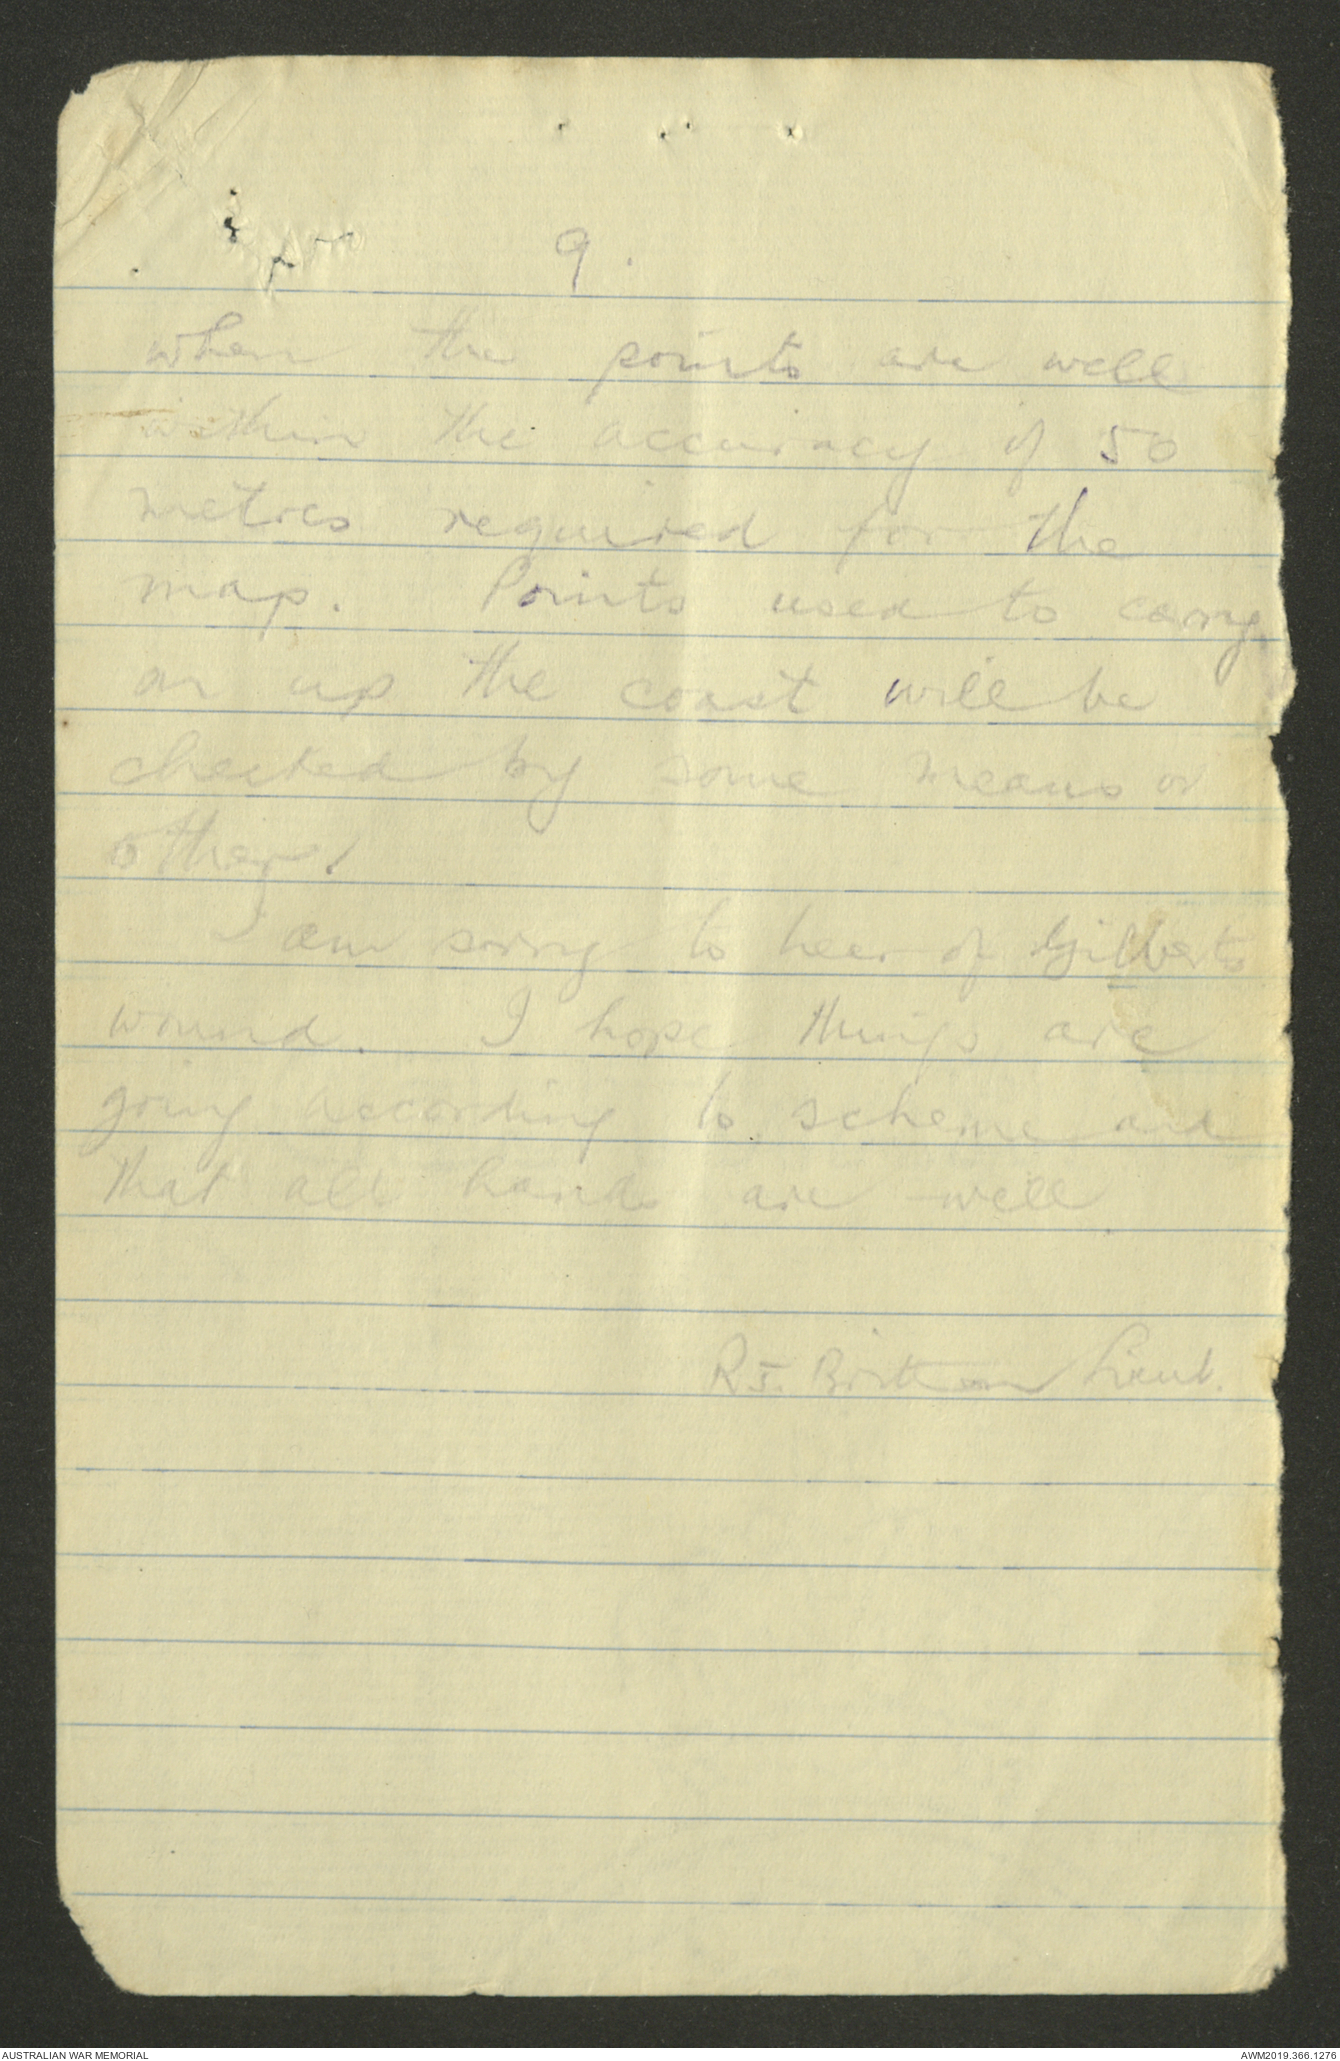 9.
when the points are well
within the accuracy of 50
metres required for the
map. Points used to carry
on up the coast will be
checked by some means or
other.
I am sorry to hear of Gilberts
wound. I hope things are
going according to scheme and
that all hands are well.
Lieut.
AUSTRALIAN WAR MEMORIAL
AWM2019.366.1276